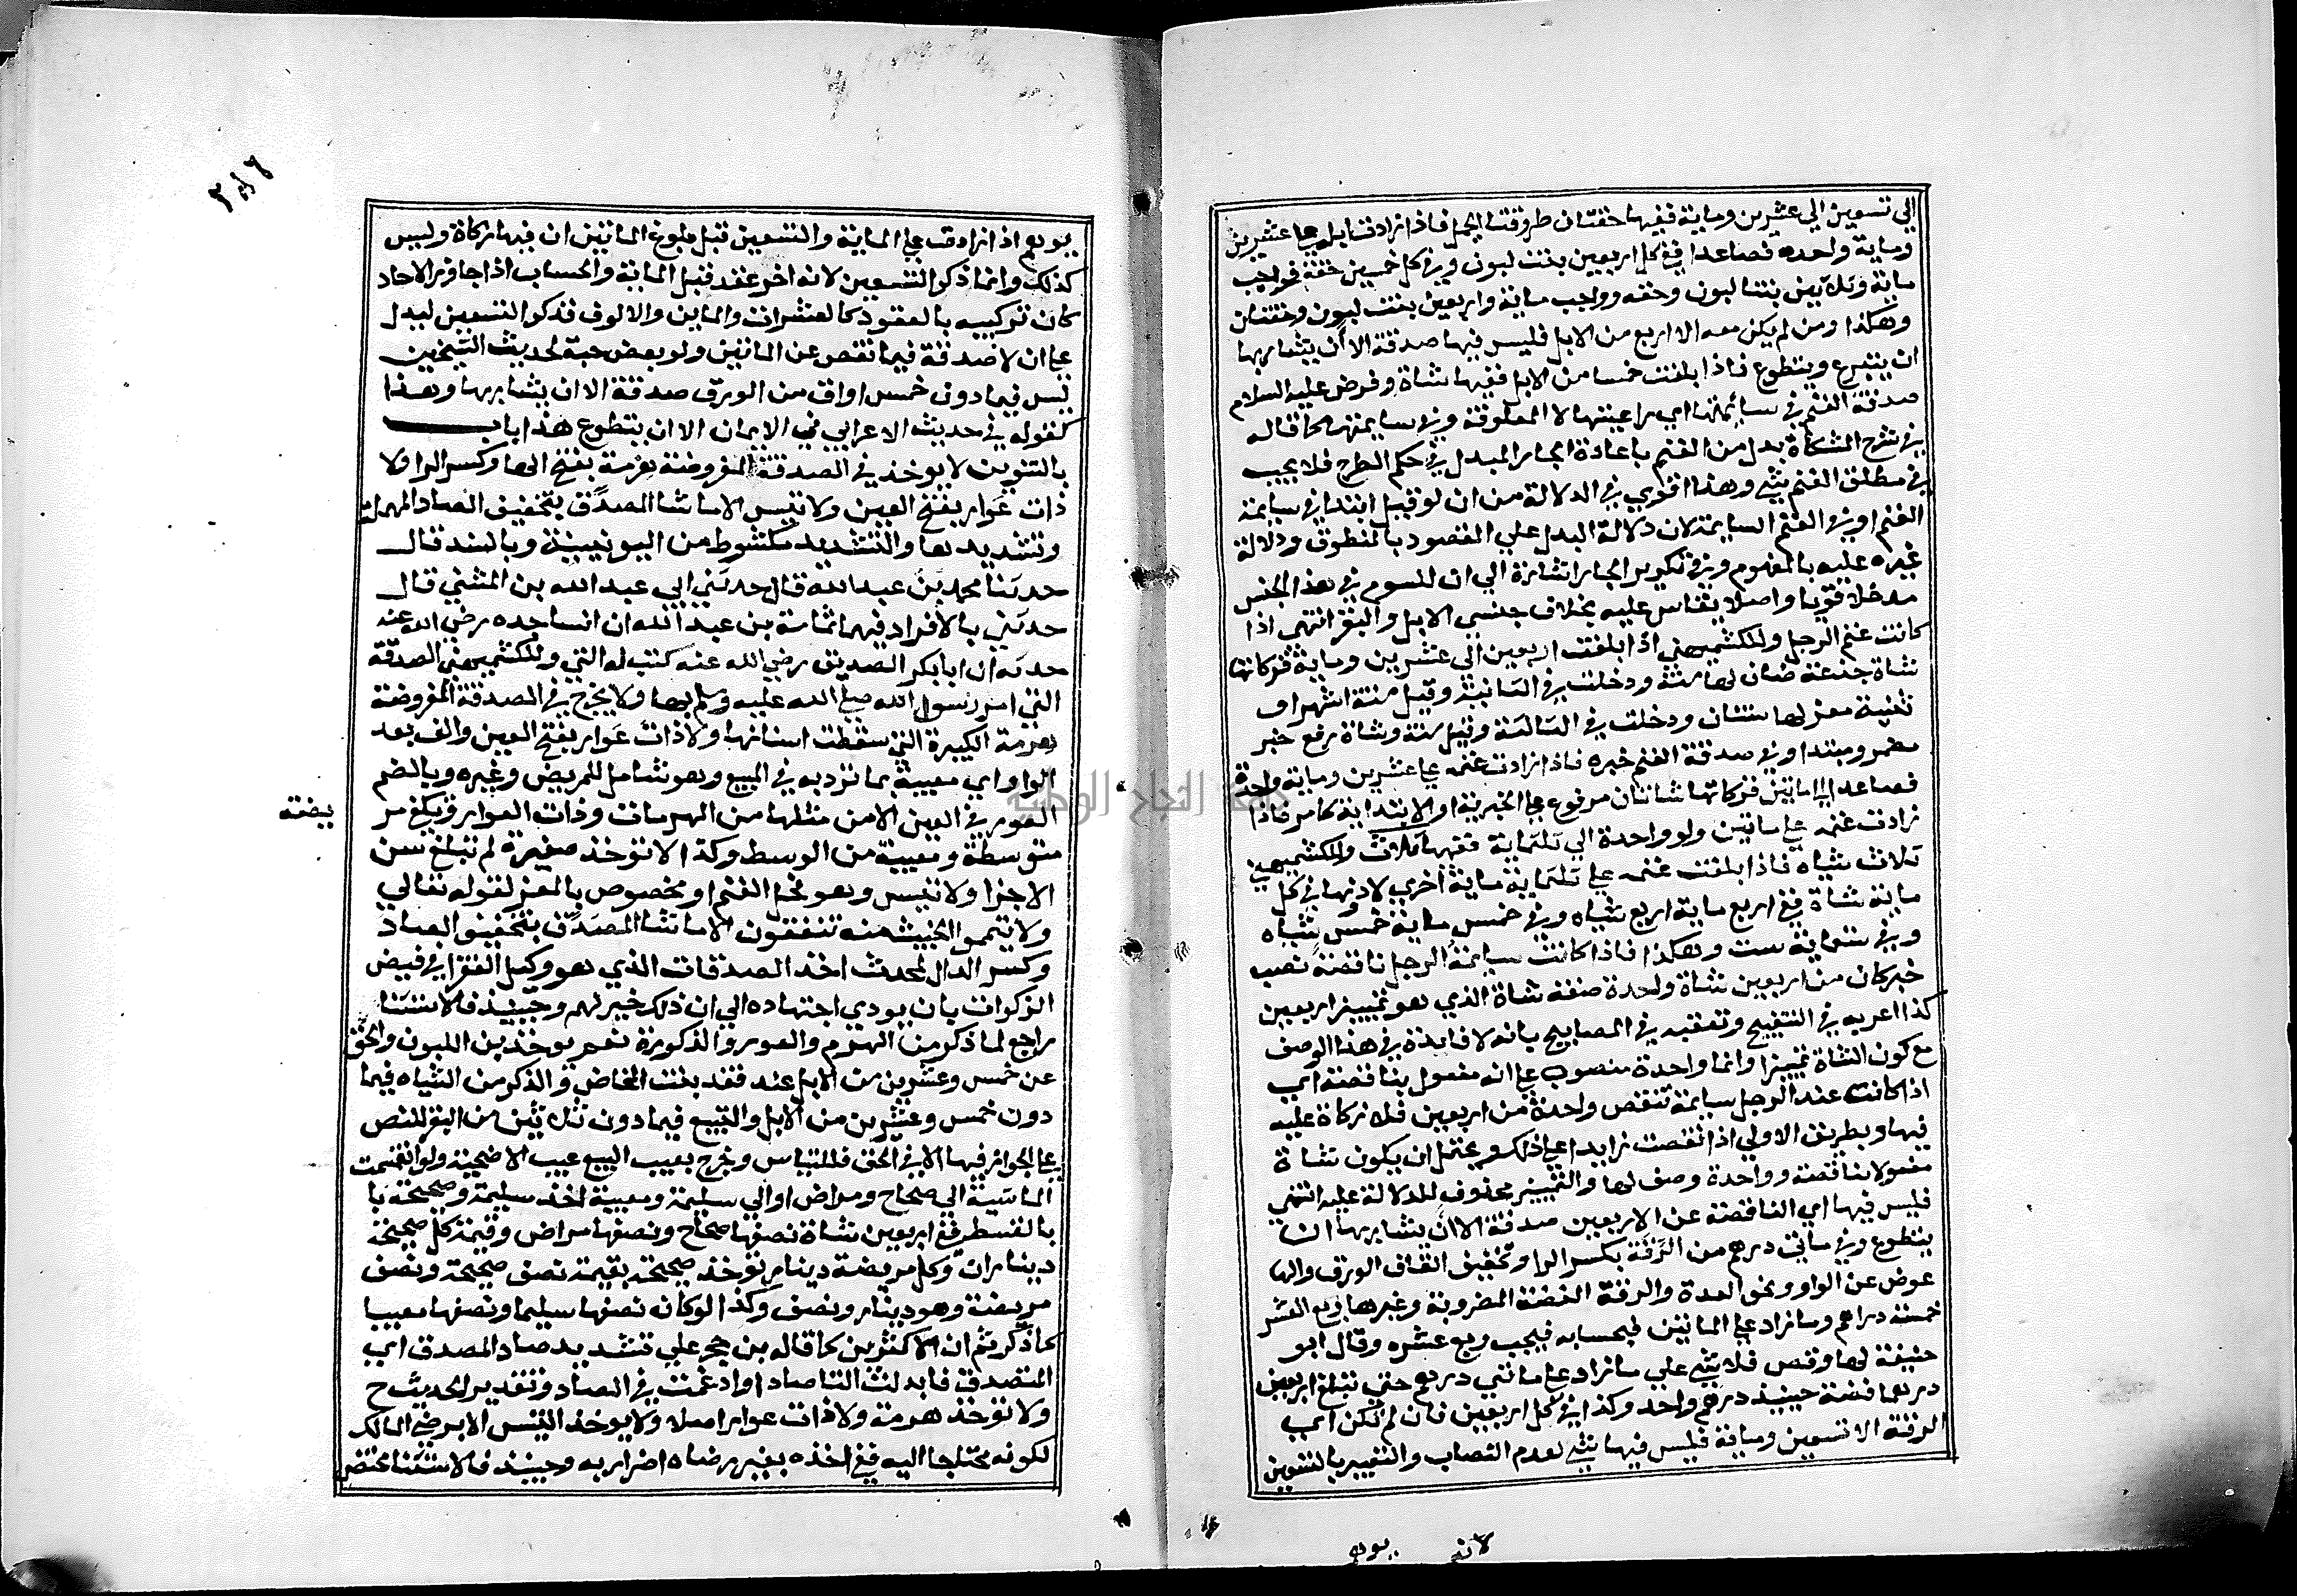 الي تسعين الي عشرين وماية ففيها حقتان طروقتا الجمل فاذا زادت ابله علي عشرين
وماية واحده فصاعدا ففي كل اربعين بنت لبون وفي كل خمسين حقة فواجب
ماية وثلاثين بنتا لبون وحقه وواجب ماية واربعين بنت لبون وحقتان
وهكذا ومن لم يكن معه الا اربع من الابل فليس فيها صدقة الا ان يشا ربها
ان يتبرع ويتطوع فاذا بلغت خمسا من الابل ففيها شاة وفرض عليه السلام
صدقة الغنم في سائمتها اي راعيتها لا المعلوفة وفي سايمتها كما قاله
في شرح المشكاة بدل من الغنم باعادة الجار المبدل في حكم الطرح فلا يجب
في مطلق الغنم شي وهذا اقوي في الدلالة من ان لو قيل ابتدا في سايمة
الغنم او في الغنم السايمة لان دلالة البدل علي المقصود بالمنطوق ودلالة
غيره عليه بالمفهوم وفي تكرير الجار اشارة الي ان للسوم في هذا الجنس
مدخلا قويا واصلا يقاس عليه بخلاف جنسي الابل والبقر انتهي اذا
كانت غنم الرجل وللكشميهني اذا بلغت اربعين الي عشرين وماية فزكاتها
شاة جذعة ضان لها سنة ودخلت في الثانية وقيل ستة اشهر او
ثنية معز لها سنتان ودخلت في الثالثة وقيل سنة وشاة رفع خبر
مضمر ومبتدا وفي صدقة الغنم خبره فاذا زادت غنمه علي عشرين وماية واحدة
فصاعدا الي ماتين فزكاتها شاتان مرفوع علي الخبرية او الابتداية كما مر فاذا
زادت غنمه علي ماتين ولو واحدة الي ثلثماية ففيها ثلاث وللكشميهني
ثلاث شياه فاذا بلغت غنمه علي ثلثماية ماية اخري لا دونها ففي كل
ماية شاة ففي اربع ماية اربع شياه وفي خمس ماية خمس شياه
وفي ستماية ست وهكذا فاذا كانت سايمة الرجل ناقصة نصب
خبر كان من اربعين شاة واحدة صفة شاة الذي هو تمييز اربعين
كذا اعربه في التنقيح وتعقبه في المصابيح بانه لا فايدة في هذا الوصف
مع كون الشاة تمييزا وانما واحدة منصوب علي انه مفعول بناقصة اي
اذا كانت عند الرجل سايمة تنقص واحدة من اربعين فلا زكاة عليه
فيها وبطريق الاولي اذا نقصت زايدا علي ذلك ويحتمل ان يكون شاة
مفعولا بناقصة وواحدة وصف لها والتمييز محذوف للدلالة عليه انتهي
فليس فيها اي الناقصة عن الاربعين صدقة الا ان يشا ربها ان
يتطوع وفي ماتي درهم من الرقة بكسر الرا وتخفيف القاف الورق والها
عوض عن الواو ونحو العدة والرقة الفضة المضروبة وغيرها ربع العشر
خمسة دراهم وما زاد علي الماتين فبحسابه فيجب ربع عشره وقال ابو
حنيفة لها وقص فلا شي علي ما زاد علي ماتي درهم حتي تبلغ اربعين
درهما فضة حينيذ درهم واحد وكذا في كل اربعين فان لم تكن اي
الرقة الا تسعين وماية فليس فيها شي لعدم النصاب والتعبير بالتسعين
لانه يوهم
٢٨٦
يوهم اذا زادت علي الماية والتسعين قبل بلوغ الماتين ان فيها زكاة وليس
كذلك وانما ذكر التسعين لانه اخر عقد قبل الماية والحساب اذا جاوز الاحاد
كان تركيبه بالعقود كالعشرات والماين والالوف فذكر التسعين ليدل
علي ان لا صدقة فيما نقص عن الماتين ولو بعض حبة لحديث الشيخين
ليس فيما دون خمس اواق من الورق صدقة الا ان يشا ربها وهذا
كقوله في حديث الاعرابي في الايمان الا ان يتطوع هذا باب
بالتنوين لا يوخذ في الصدقة المفروضة هرمة بفتح الها وكسر الرا ولا
ذات عوار بفتح العين ولا تيس الا ما شا المصدق بتخفيف الصاد المهملة
وتشديدها والتشديد مكشوط من اليونينية وبالسند قال
حدثنا محمد بن عبد الله قال حدثني ابي عبد الله بن المثني قال
حدثني بالافراد فيهما ثمامة بن عبد الله ان انسا جده رضي الله عنه
حدثه ان ابا بكر الصديق رضي الله عنه كتب له التي وللكشميهني الصدقة
التي امر رسول الله صلي الله عليه وسلم بها ولا يخرج في الصدقة المفروضة
هرمة الكبيرة التي سقطت اسنانها ولا ذات عوار بفتح العين والف بعد
الواو اي معيبة بما ترد به في البيع وهو شامل للمريض وغيره وبالضم
العور في العين الا من مثلها من الهرمات وذات العوار ويكفي مر
بضة
متوسطة ومعيبة من الوسط وكذا لا توخذ صغيرة لم تبلغ سن
الاجزا ولا تيس وهو فحل الغنم او مخصوص بالمعز لقوله تعالي
ولا تيمموا الخبيث منه تنفقون الا ما شا المصدق بتخفيف الصاد
وكسر الدال لمحدث اخذ الصدقات الذي هو وكيل الفقرا في قبض
الزكوات بان يودي اجتهاده الي ان ذلك خير لهم وحينيذ فالاستثنا
راجع لما ذكر من الهرم والعور والذكورة نعم يوخذ بن اللبون والحق
عن خمس وعشرين من الابل عند فقد بنت المخاض والذكر من الشياه فيما
دون خمس وعشرين من الابل والتبيع فيما دون ثلاثين من البقر للنص
علي الجواز فيها الا في الحق فللقياس وخرج بعيب البيع عيب الاضحية ولو انقسمت
الماشية الي صحاح ومراض او الي سليمة ومعيبة اخذ سليمة وصحيحة با
بالقسط ففي اربعين شاة نصفها صحاح ونصفها مراض وقيمة كل صحيحة
ديناران وكل مريضة دينار توخذ صحيحة بقيمة نصف صحيحة ونصف
مريضة وهو دينار ونصف وكذا لو كان نصفها سليما ونصفها معيبا
كما ذكر ثم ان الاكثرين كما قاله بن حجر علي تشديد صاد المصدق اي
المتصدق فابدلت التا صادا وادغمت في الصاد وتقدير الحديث ح
ولا توخذ هرمة ولا ذات عوار اصلا ولا يوخذ التيس الا برضي المالك
لكونه محتاجا اليه ففي اخذه بغير رضاه اضرار به وحينيذ فالاستثنا مختص